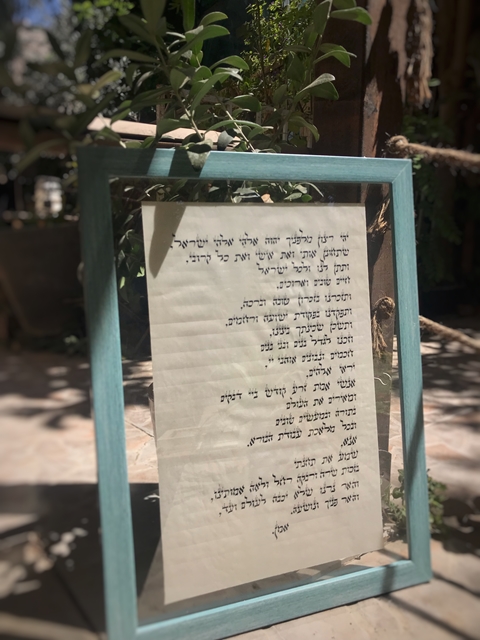 יהי רצון מלפניך יהוה אלהי אלהי ישראל,
שתחונן אותי ואת אישי ואת כל קרובי.
ותתן לנו ולכל ישראל
חיים טובים וארוכים.
ותזכרנו בזכרון טובה וברכה,
ותפקדנו בפקודת ישועה ורחמים,
ותשכן שכינתך בינינו,
וזכנו לגדל בנים ובני בנים
חכמים ונבונים אוהבי יי.
יראי אלהים,
אנשי אמת זרע קודש ביי דבקים
ומאירים את העולם
בתורה ובמעשים טובים
ובכל מלאכת עבודת הבורא.
אנא,
שמע את תחנתי
בזכות שרה ורבקה רחל ולאה אמותינו,
והאר נרנו שלא יכבה לעולם ועד,
והאר פניך ונושעה.
אמן.